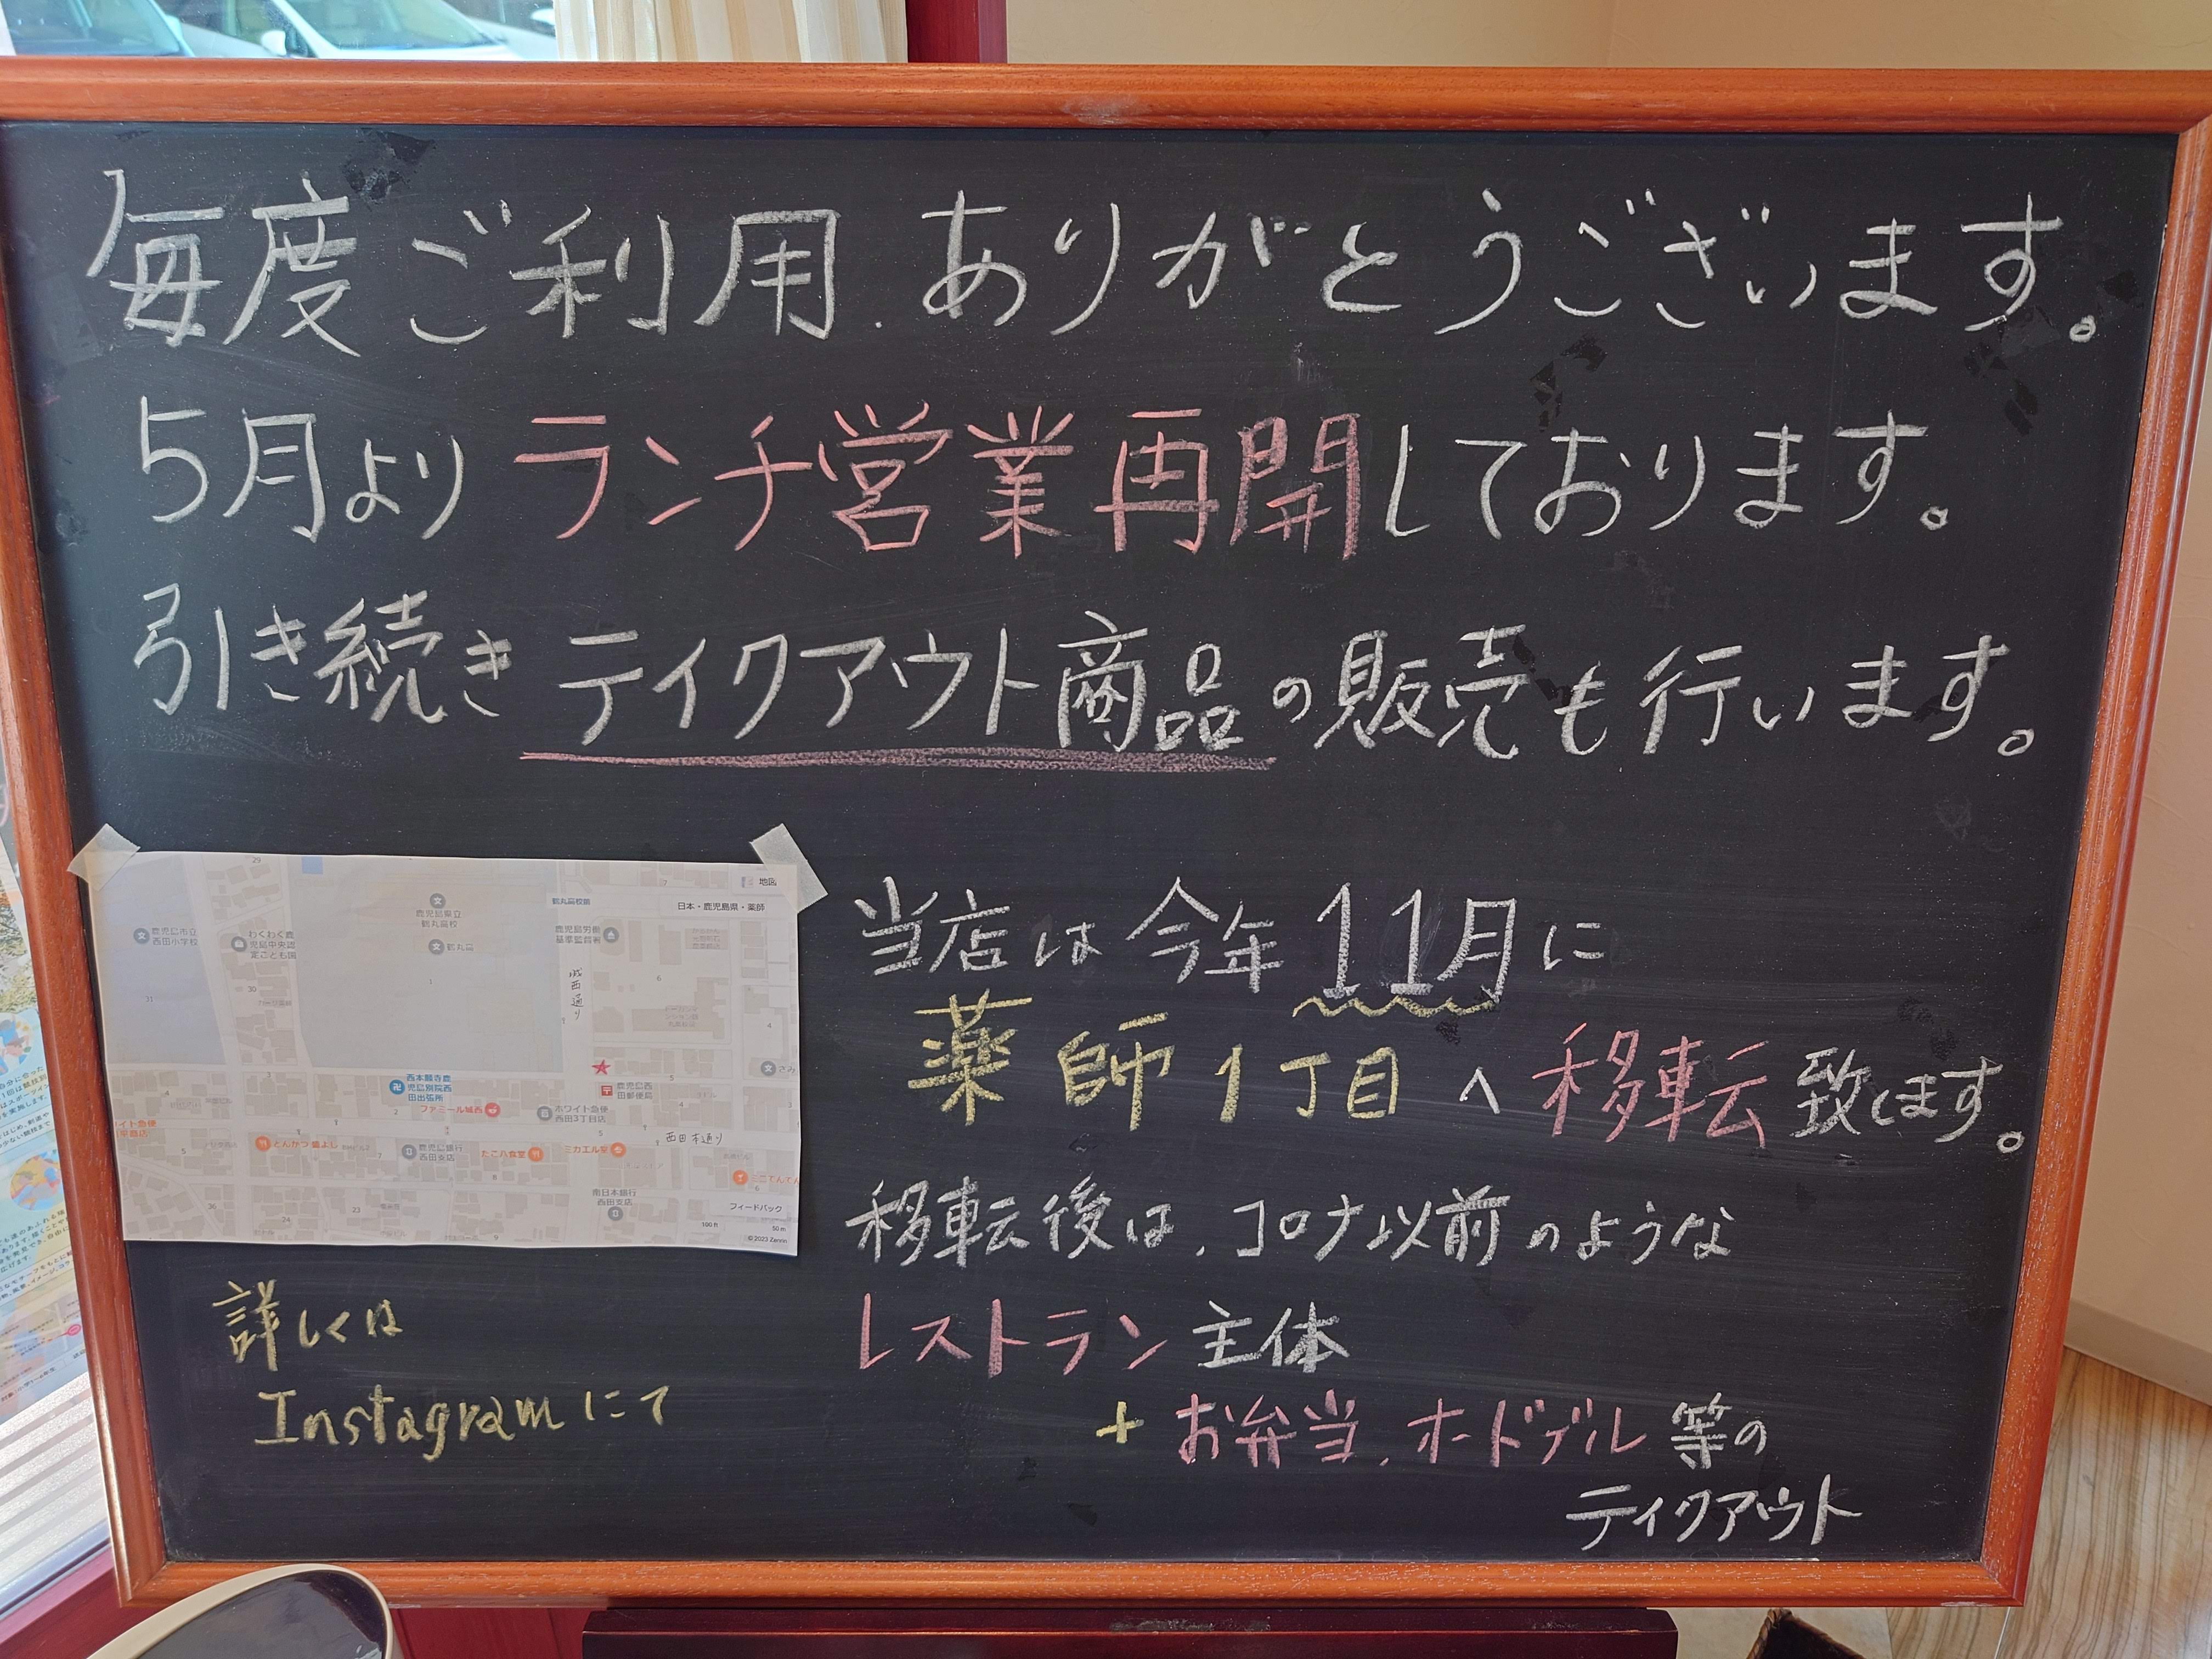 毎度ご利用、ありがとうございます。
5月よりランチ営業再開しております。
引き続きテイクアウト商品の販売も行います。
当店は今年11月に
薬師1丁目へ移転致します。
移転後は、コロナ以前のような
レストラン主体
+お弁当、オードブル等の
テイクアウト
詳しくは
Instagramにて
地図
日本・鹿児島県・薬師
鹿児島市立
西田小学校
わくわく鹿
児島中央認
定こども園
鹿児島県立
鶴丸高校
鶴丸高
鶴丸高校前
鹿児島労働
基準監督署
城西通り
西本願寺鹿
児島別院西
田出張所
ファミール城西
ホワイト急便
西田3丁目店
鹿児島西
田郵便局
とんかつ 盛よし
鹿児島銀行
西田支店
たこ八食堂
ミカエル堂
西田本通り
南日本銀行
西田支店
フィードバック
100 ft
50 m
© 2023 Zenrin